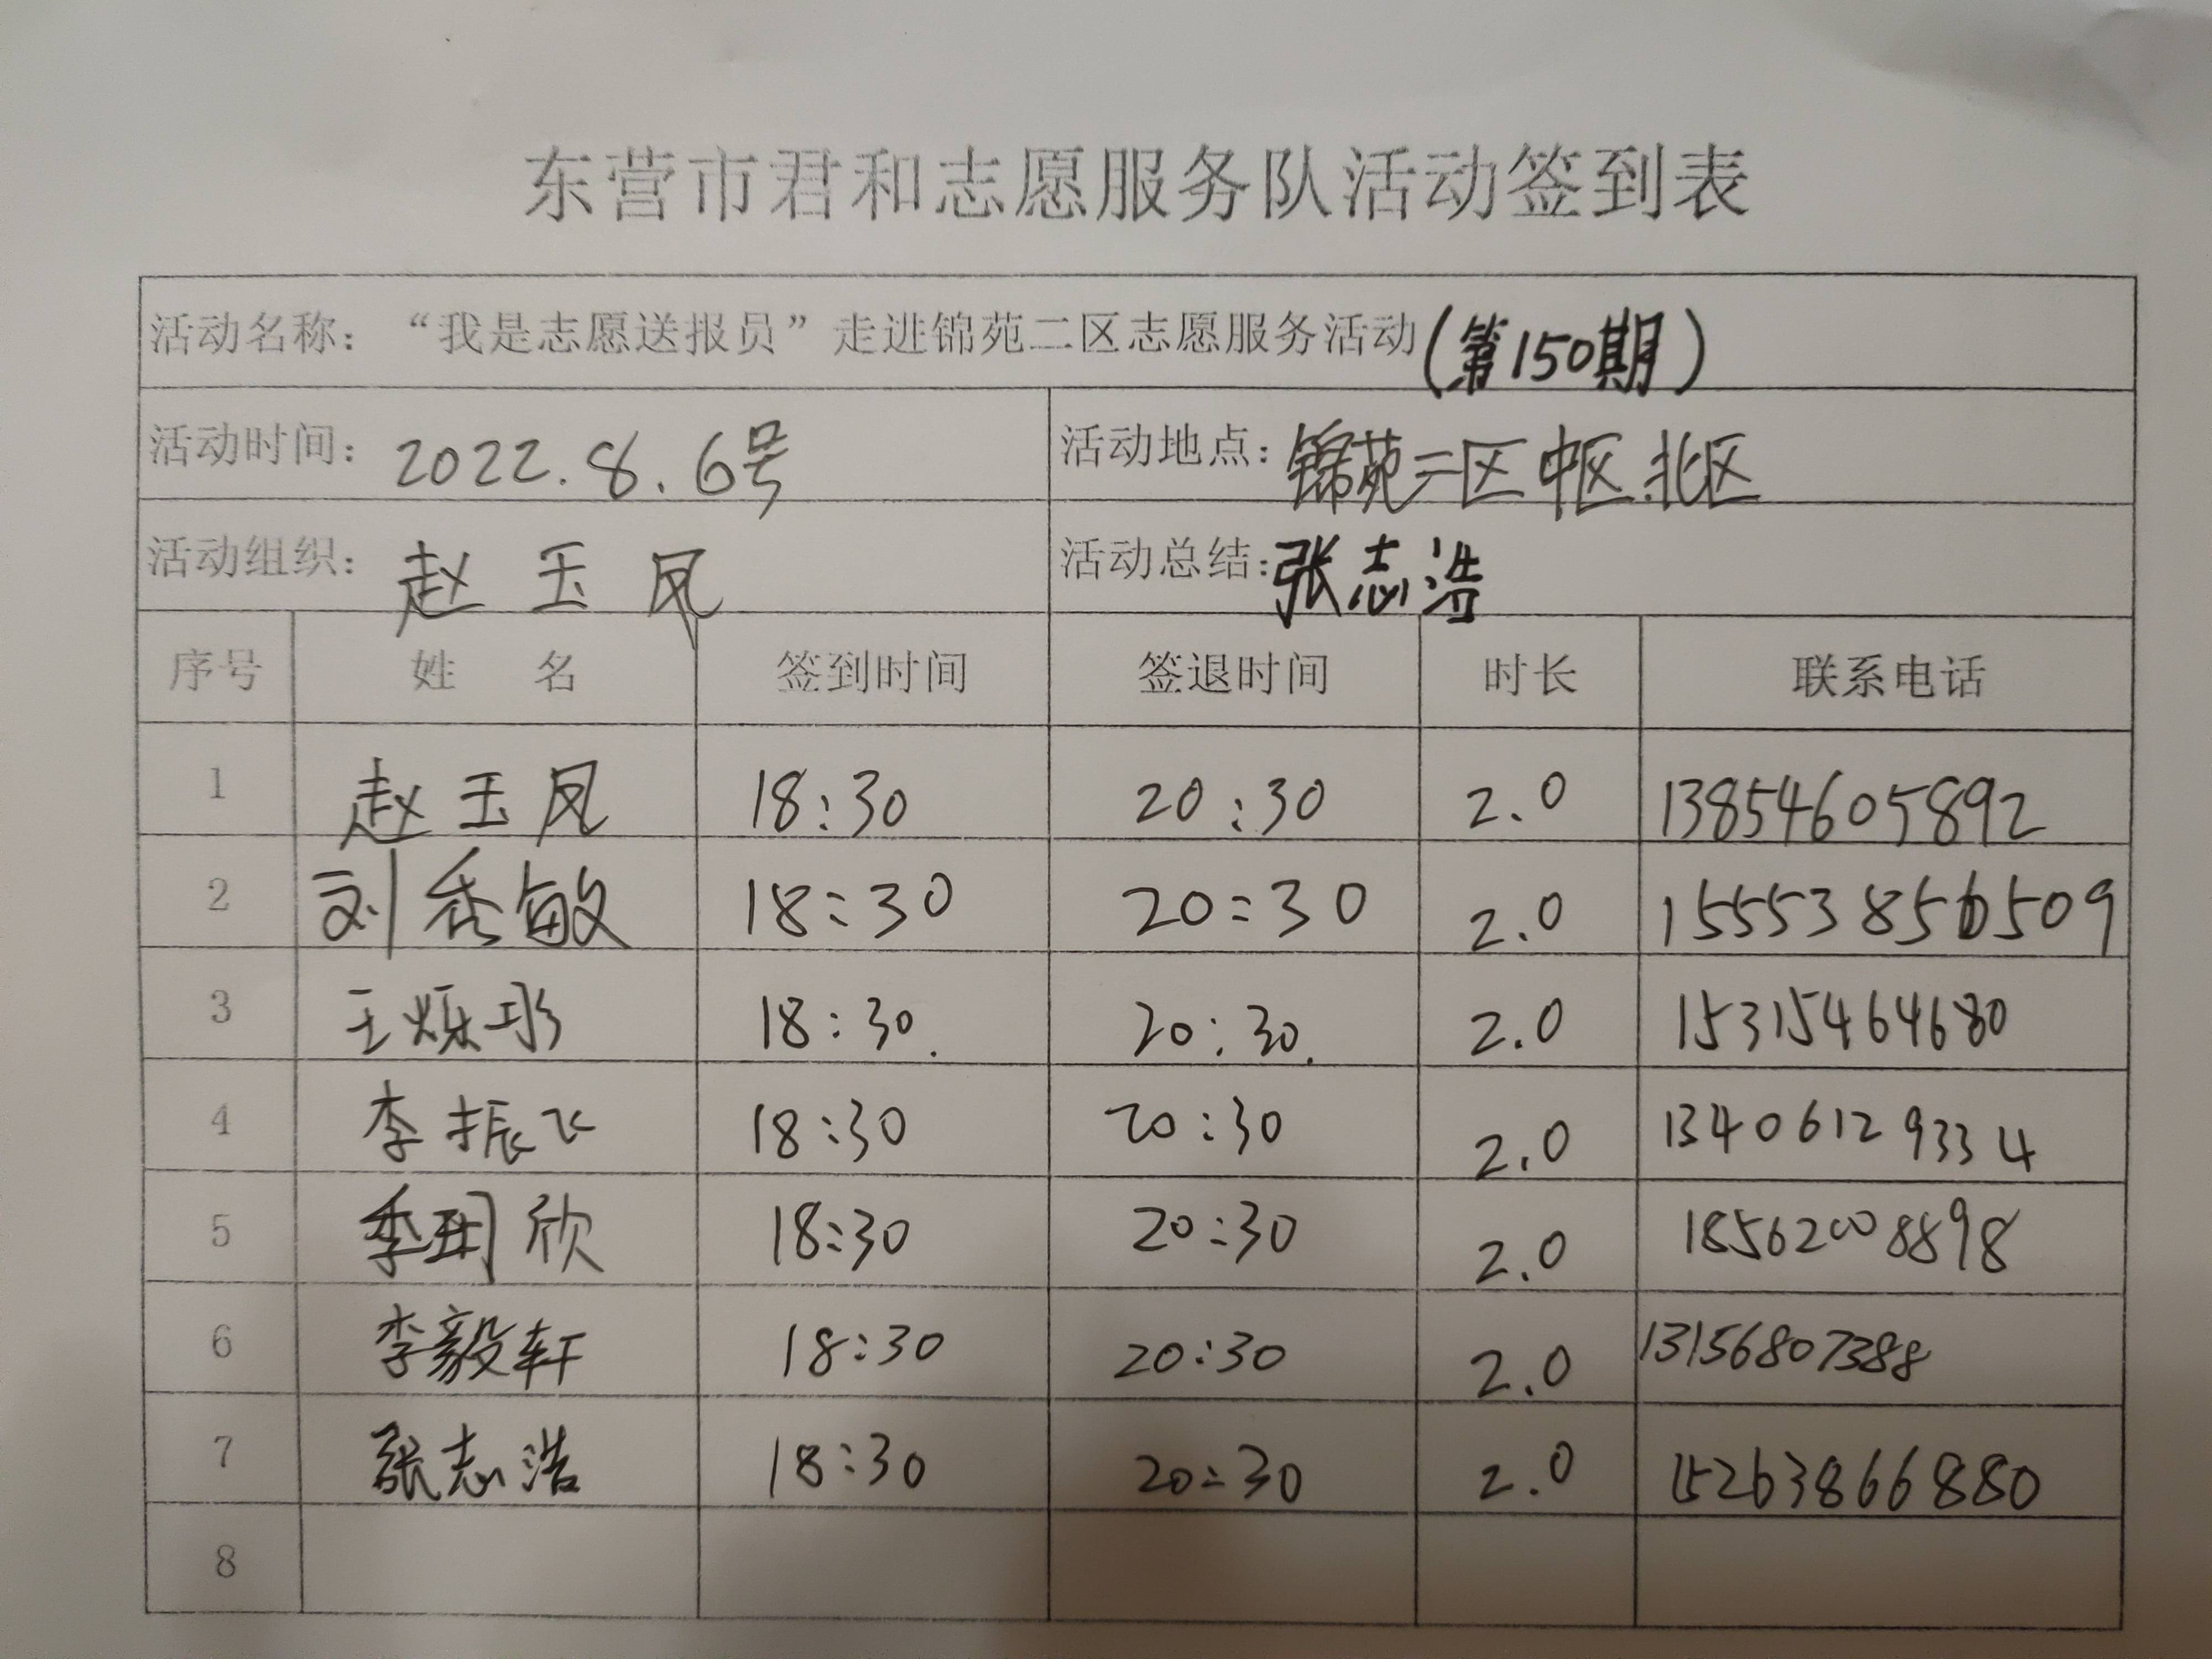 东营市君和志愿服务队活动签到表
活动名称：“我是志愿送报员”走进锦苑二区志愿服务活动（第150期）
活动时间：2022.8.6号 活动地点：锦苑二区中区.北区
活动组织：赵玉凤 活动总结：张志浩
序号 姓名 签到时间 签退时间 时长 联系电话
1 赵玉凤 18:30 20:30 2.0 13854605892
2 刘秀敏 18:30 20:30 2.0 15553856509
3 王烁彤 18:30. 20:30. 2.0 15315464680
4 李振飞 18:30 20:30 2.0 13406129334
5 18:30 20:30 2.0 18562008898
6 李毅轩 18:30 20:30 2.0 13156807388
7 张志浩 18:30 20:30 2.0 15263866880
8